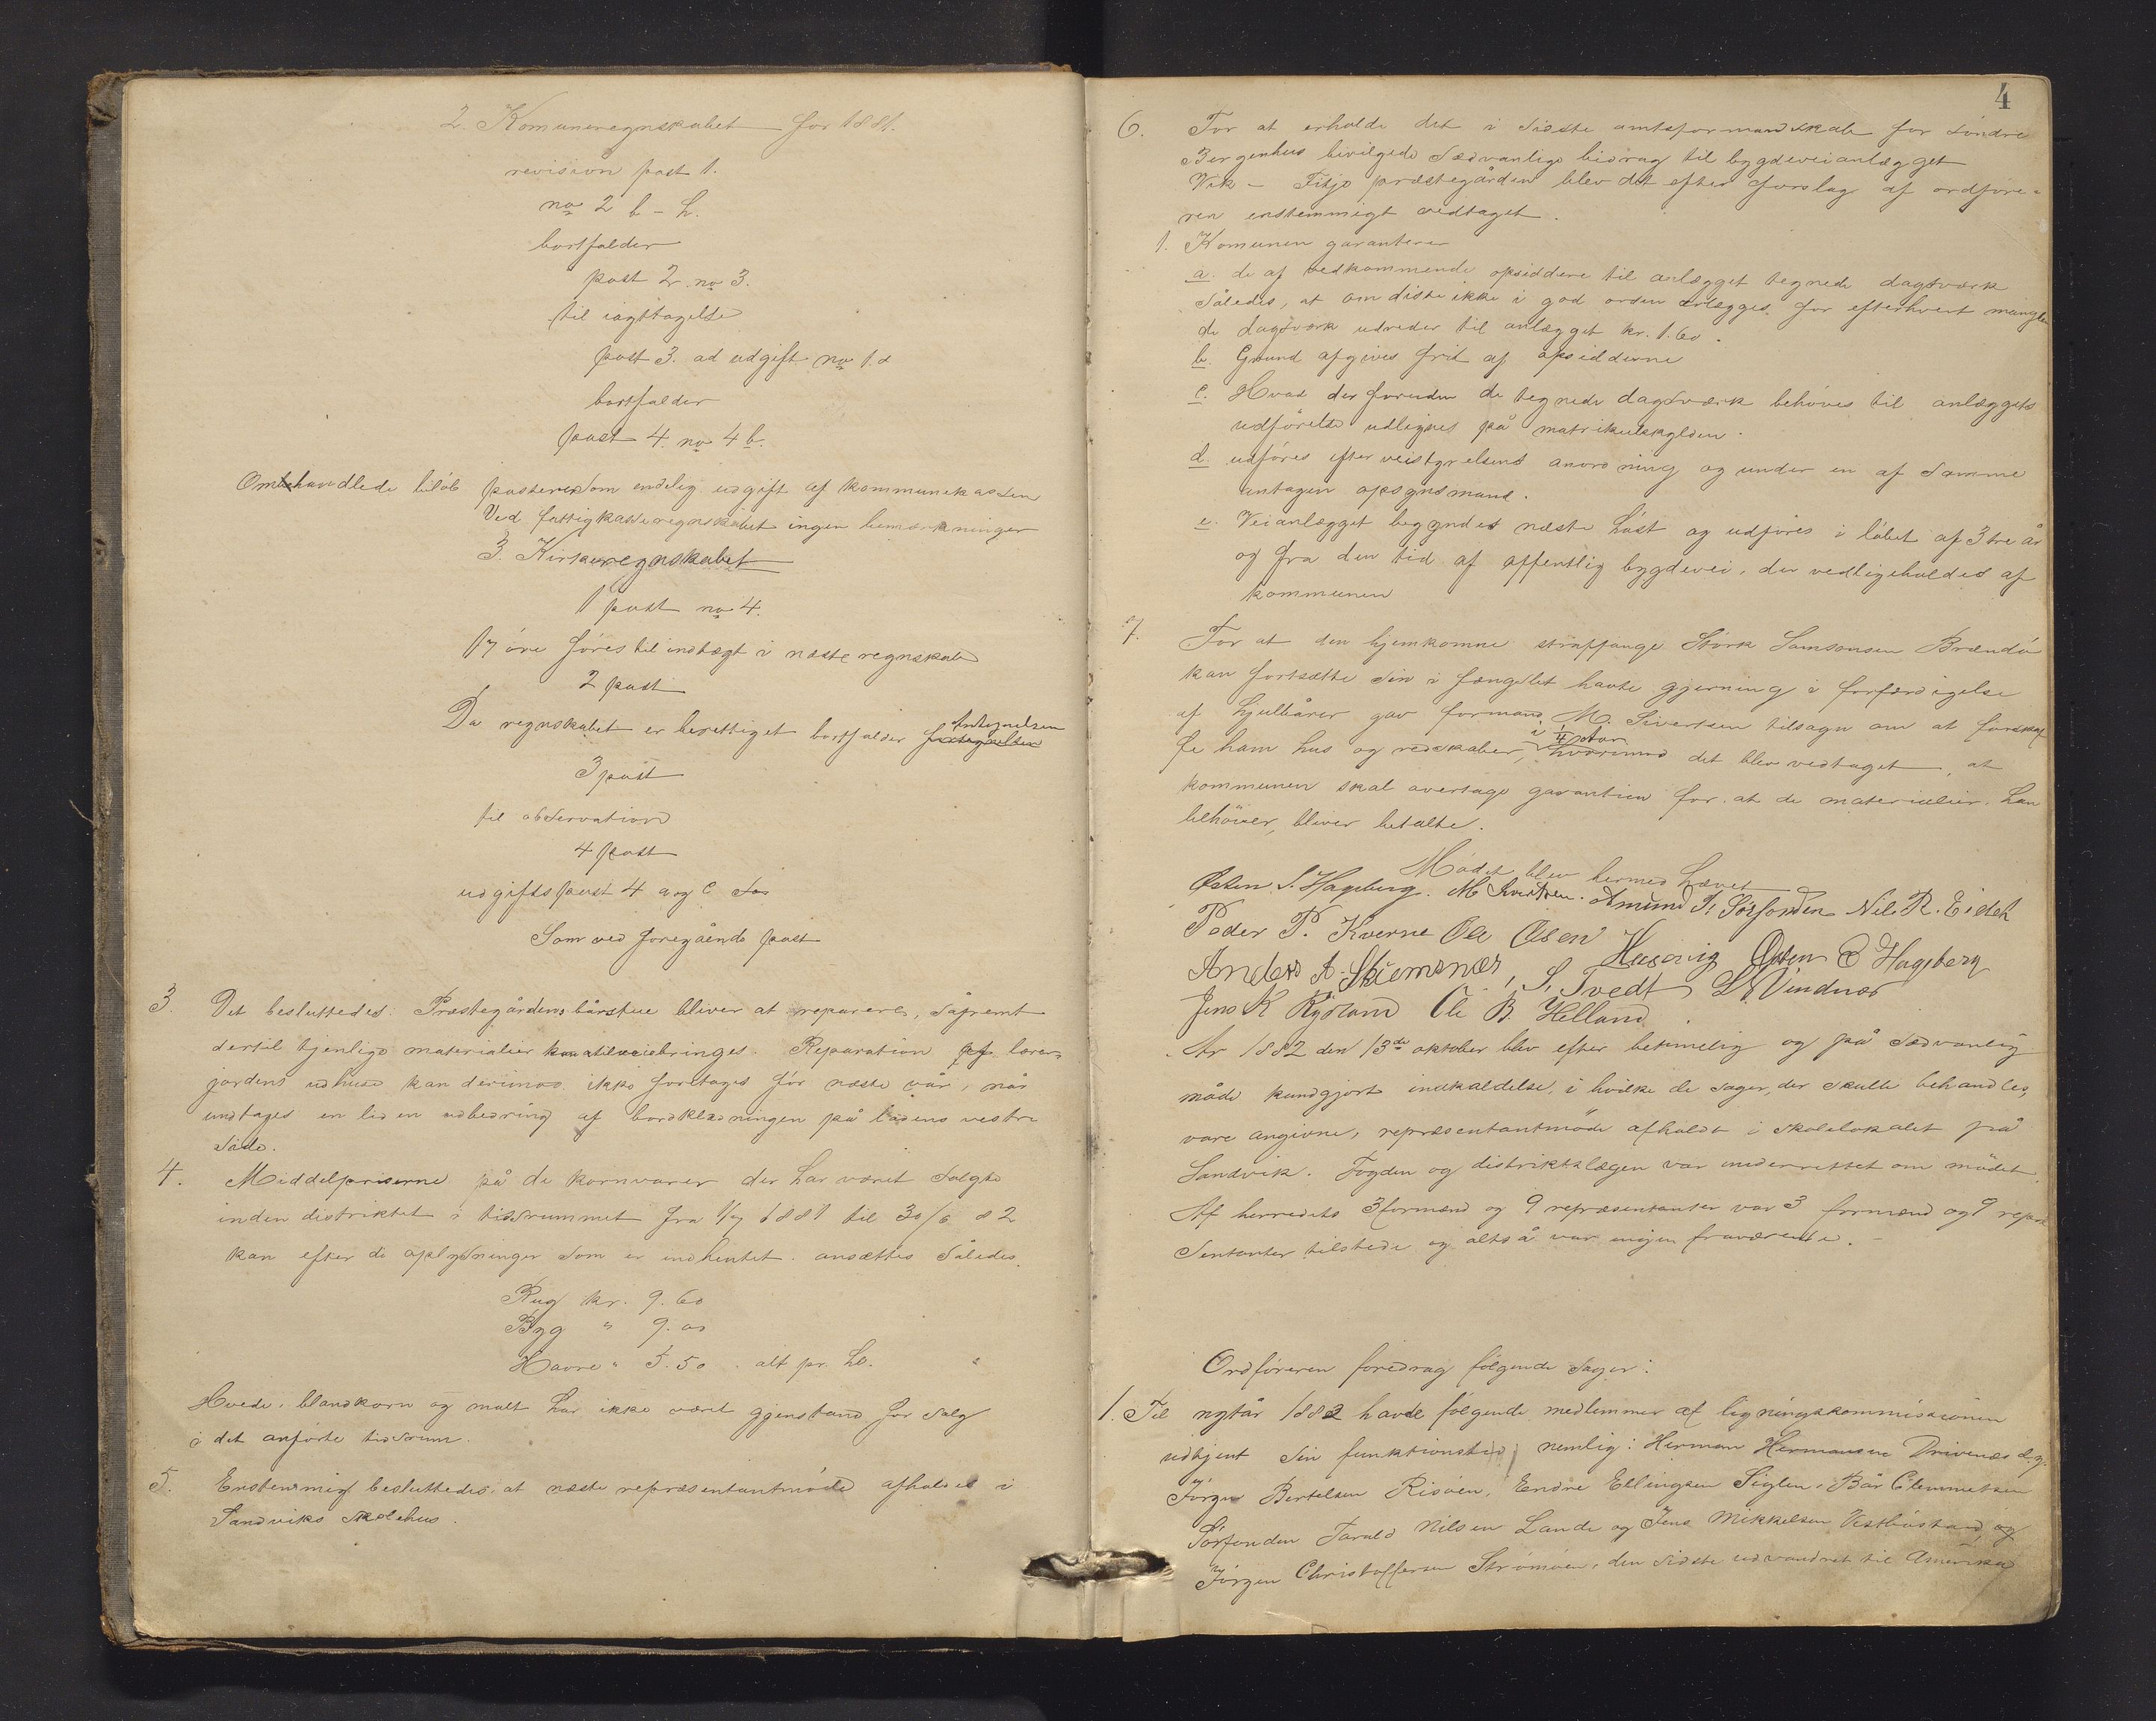 2. Komuneregnskabet for 1881.
revision post 1.
no 2 b - h.
bortfalder
post 2 no 3.
til iagttagelse
post 3. ad udgift no 1. d
bortfalder
post 4. no 4 b.
Omhandlede beløb posteres som endelig udgift af kommunekassen
Ved fattigkasseregnskabet ingen bemærkninger
3. Kirkeregnskabet
1 post no 4.
17 øre føres til indtægt i næste regnskab
2 post
Da regnskabet er berettiget bortfalder Antegnelsen
3 post
til observation
4 post
udgiftspost 4 a og c
Som ved foregående post
3. Det besluttedes: Præstegårdens bårstue bliver at reparere, såfremt
dertil tjenlige materialier kan tilveiebringes. Reparation af lærer-
gardens udhuse kan derimod ikke foretages før næste vår, når
undtages en liden udbedring af bordklædningen på ladens vestre
side.
4. Middelpriserne på de kornvarer der har været solgte
inden distriktet i tidsrummet fra 1/7 1881 til 30/6 82
kan efter de oplysninger som er indhentet ansættes således.
Rug kr. 9.60
Byg " 9.00
Havre " 5.50. alt pr. hl.
Hvede, blandkorn og malt har ikke været gjenstand for salg
i det anførte tidsrum.
5. Enstemmig besluttedes, at næste repræsentantmøde afholdes i
Sandviks skolehus.
4
6. For at erholde det i sidste amtsformandskab for søndre
Bergenhus bevilgede sædvanlige bidrag til bygdeveianlægget
Vik - Fitje præstegården blev det efter forslag af ordføre-
ren enstemmigt vedtaget.
1. Komunen garanterer
a. de af vedkommende opsiddere til anlægget tegnede dagsværk
således, at om disse ikke i god orden erlægges for efterhvert manglen
de dagsværk udreder til anlægget kr. 1.60.
b. Grund afgives frit af opsidderne
c. Hvad der foruden de tegnede dagsværk behøves til anlæggets
udførelse udlignes på matrikulskylden.
d. udføres efter veistyrelsens anordning og under en af samme
antagen opsynsmand.
e. Veianlægget begyndes næste høst og udføres i løbet af 3 tre år
og fra den tid af offentlig bygdevei, der vedligeholdes af
kommunen
7. For at den hjemkomne straffange Størk Samsonsen Brændø
kan fortsætte sin i fængslet havte gjerning i forfærdigelse
af hjulbårer gav formand M. Sivertsen tilsagn om at forskaf
fe ham hus og redskaber, hvorimod det blev vedtaget, at
kommunen skal overtage garantien for at de materialier, han
behøver, bliver betalte.
Mødet blev hermed hævet
Østen S. Hageberg. M Sivertsen. Amund T. Sørfonden Nils R. Eideh
Peder P. Kverne Ole Olsen Østen E Hageberg
Anders A. Skiemsnæs, S. Tvedt, Vindnæs
Jens K Rydland Ole B. Helland.
År 1882 den 13de oktober blev efter betimelig og på sædvanlig
måde kundgjort indkaldelse, i hvilke de sager, der skulle behandles,
vare angivne, repræsentantmøde afholdt i skolelokalet på
Sandvik. Fogden og distriktslægen var underrettet om mødet.
Af herredets 3 formænd og 9 repræsentanter var 3 formænd og 9 repræ
sentanter tilstede og altså var ingen fraværende.
Ordføreren foredrag følgende sager:
1. Til nytår 1883 havde følgende medlemmer af ligningskommissionen
udtjent sin funktionstid, nemlig: Herman Hermansen Drivenæs d.y.
Jørgen Bertelsen Risøen, Endre Ellingsen Siglen, Bår Clemmetsen
Sørfonden Tarald Nilsen Lande og Jens Mikkelsen Vestbøstad, og
Jørgen Christoffersen Strømøen, den sidste udvandret til Amerika